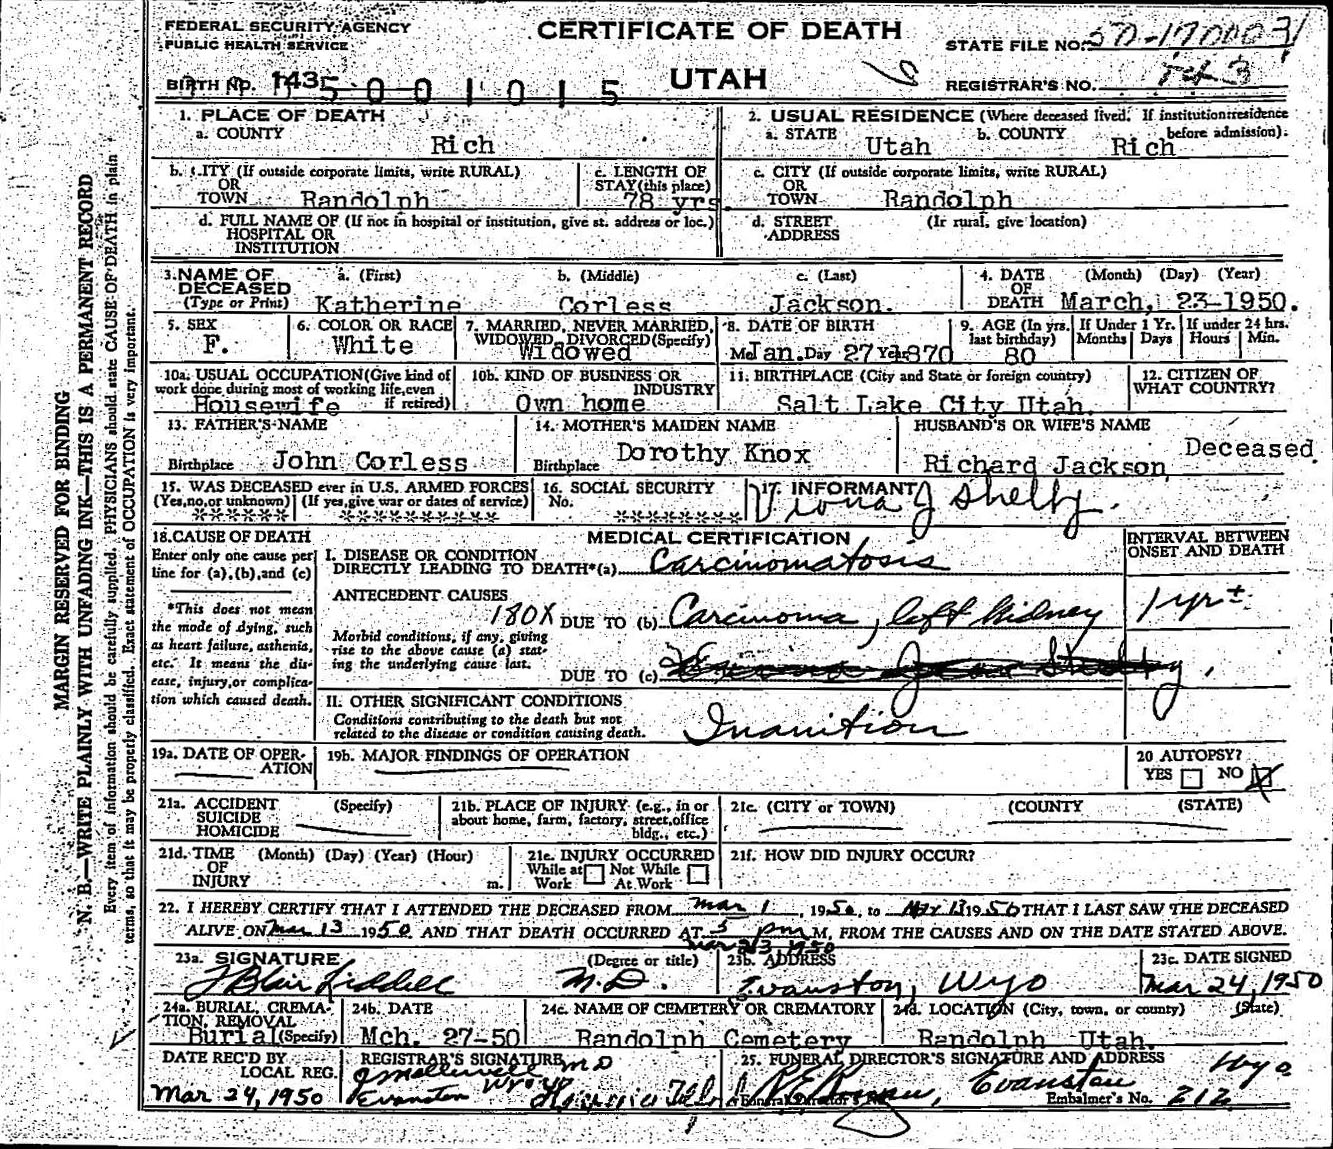 FEDERAL SECURITY AGENCY
PUBLIC HEALTH SERVICE
CERTIFICATE OF DEATH
UTAH
STATE FILE NO.
REGISTRAR'S NO.
BIRTH NO. 143
5 0 0 1 0 1 5
MARGIN RESERVED FOR BINDING
N. B.—WRITE PLAINLY WITH UNFADING INK—THIS IS A PERMANENT RECORD
Every item of information should be carefully supplied. PHYSICIANS should state CAUSE OF DEATH in plain
terms, so that it may be properly classified. Exact statement of OCCUPATION is very important.
1. PLACE OF DEATH
a. COUNTY
Rich
2. USUAL RESIDENCE (Where deceased lived. If institution: residence
before admission).
a. STATE Utah b. COUNTY Rich
b. CITY (If outside corporate limits, write RURAL)
OR
TOWN Randolph
c. LENGTH OF
STAY (this place)
78 yrs
c. CITY (If outside corporate limits, write RURAL)
OR
TOWN Randolph
d. FULL NAME OF (If not in hospital or institution, give st. address or loc.)
HOSPITAL OR
INSTITUTION
d. STREET (If rural, give location)
ADDRESS
3. NAME OF
DECEASED
(Type or Print)
a. (First) b. (Middle) c. (Last)
Katherine Corless Jackson.
4. DATE (Month) (Day) (Year)
OF
DEATH March, 23-1950.
5. SEX
F.
6. COLOR OR RACE
White
7. MARRIED, NEVER MARRIED,
WIDOWED, DIVORCED (Specify)
Widowed
8. DATE OF BIRTH
Mo Jan. Day 27 Yr 1870
9. AGE (In yrs.
last birthday)
80
If Under 1 Yr.
Months Days
If under 24 hrs.
Hours Min.
10a. USUAL OCCUPATION (Give kind of
work done during most of working life, even
if retired)
Housewife
10b. KIND OF BUSINESS OR
INDUSTRY
Own home
11. BIRTHPLACE (City and State or foreign country)
Salt Lake City Utah.
12. CITIZEN OF
WHAT COUNTRY?
13. FATHER'S NAME
Birthplace John Corless
14. MOTHER'S MAIDEN NAME
Dorothy Knox
Birthplace
HUSBAND'S OR WIFE'S NAME
Deceased
Richard Jackson
15. WAS DECEASED ever in U.S. ARMED FORCES
(Yes, no, or unknown) (If yes, give war or dates of service)
****** **********
16. SOCIAL SECURITY
No. ********
17. INFORMANT
Viona J Shelby.
18. CAUSE OF DEATH
Enter only one cause per
line for (a), (b), and (c)
*This does not mean
the mode of dying, such
as heart failure, asthenia,
etc. It means the dis-
ease, injury, or complica-
tion which caused death.
MEDICAL CERTIFICATION
INTERVAL BETWEEN
ONSET AND DEATH
I. DISEASE OR CONDITION
DIRECTLY LEADING TO DEATH*(a) Carcinomatosis
ANTECEDENT CAUSES
180X DUE TO (b) Carcinoma, left kidney 1 yr ±
Morbid conditions, if any, giving
rise to the above cause (a) stat-
ing the underlying cause last.
DUE TO (c)
II. OTHER SIGNIFICANT CONDITIONS
Conditions contributing to the death but not
related to the disease or condition causing death.
Inanition
19a. DATE OF OPER-
ATION
19b. MAJOR FINDINGS OF OPERATION
20 AUTOPSY?
YES NO X
21a. ACCIDENT (Specify)
SUICIDE
HOMICIDE
21b. PLACE OF INJURY (e.g., in or
about home, farm, factory, street, office
bldg., etc.)
21c. (CITY or TOWN) (COUNTY (STATE)
21d. TIME (Month) (Day) (Year) (Hour)
OF
INJURY m.
21e. INJURY OCCURRED
While at Not While
Work At Work
21f. HOW DID INJURY OCCUR?
22. I HEREBY CERTIFY THAT I ATTENDED THE DECEASED FROM Mar 1, 1950, to Mar 13 1950 THAT I LAST SAW THE DECEASED
ALIVE ON Mar 13 1950 AND THAT DEATH OCCURRED AT 5 pm M, FROM THE CAUSES AND ON THE DATE STATED ABOVE.
Mar 23, 1950
23a. SIGNATURE (Degree or title)
J Blair Liddell M.D.
23b. ADDRESS
Evanston, Wyo
23c. DATE SIGNED
Mar 24, 1950
24a. BURIAL, CREMA-
TION, REMOVAL
Burial (Specify)
24b. DATE
Mch. 27-50
24c. NAME OF CEMETERY OR CREMATORY
Randolph Cemetery
24d. LOCATION (City, town, or county) (State)
Randolph Utah.
DATE REC'D BY
LOCAL REG.
Mar 24, 1950
REGISTRAR'S SIGNATURE
MD
Evanston Wyo
25. FUNERAL DIRECTOR'S SIGNATURE AND ADDRESS
Evanston Wyo
Embalmer's No. 212